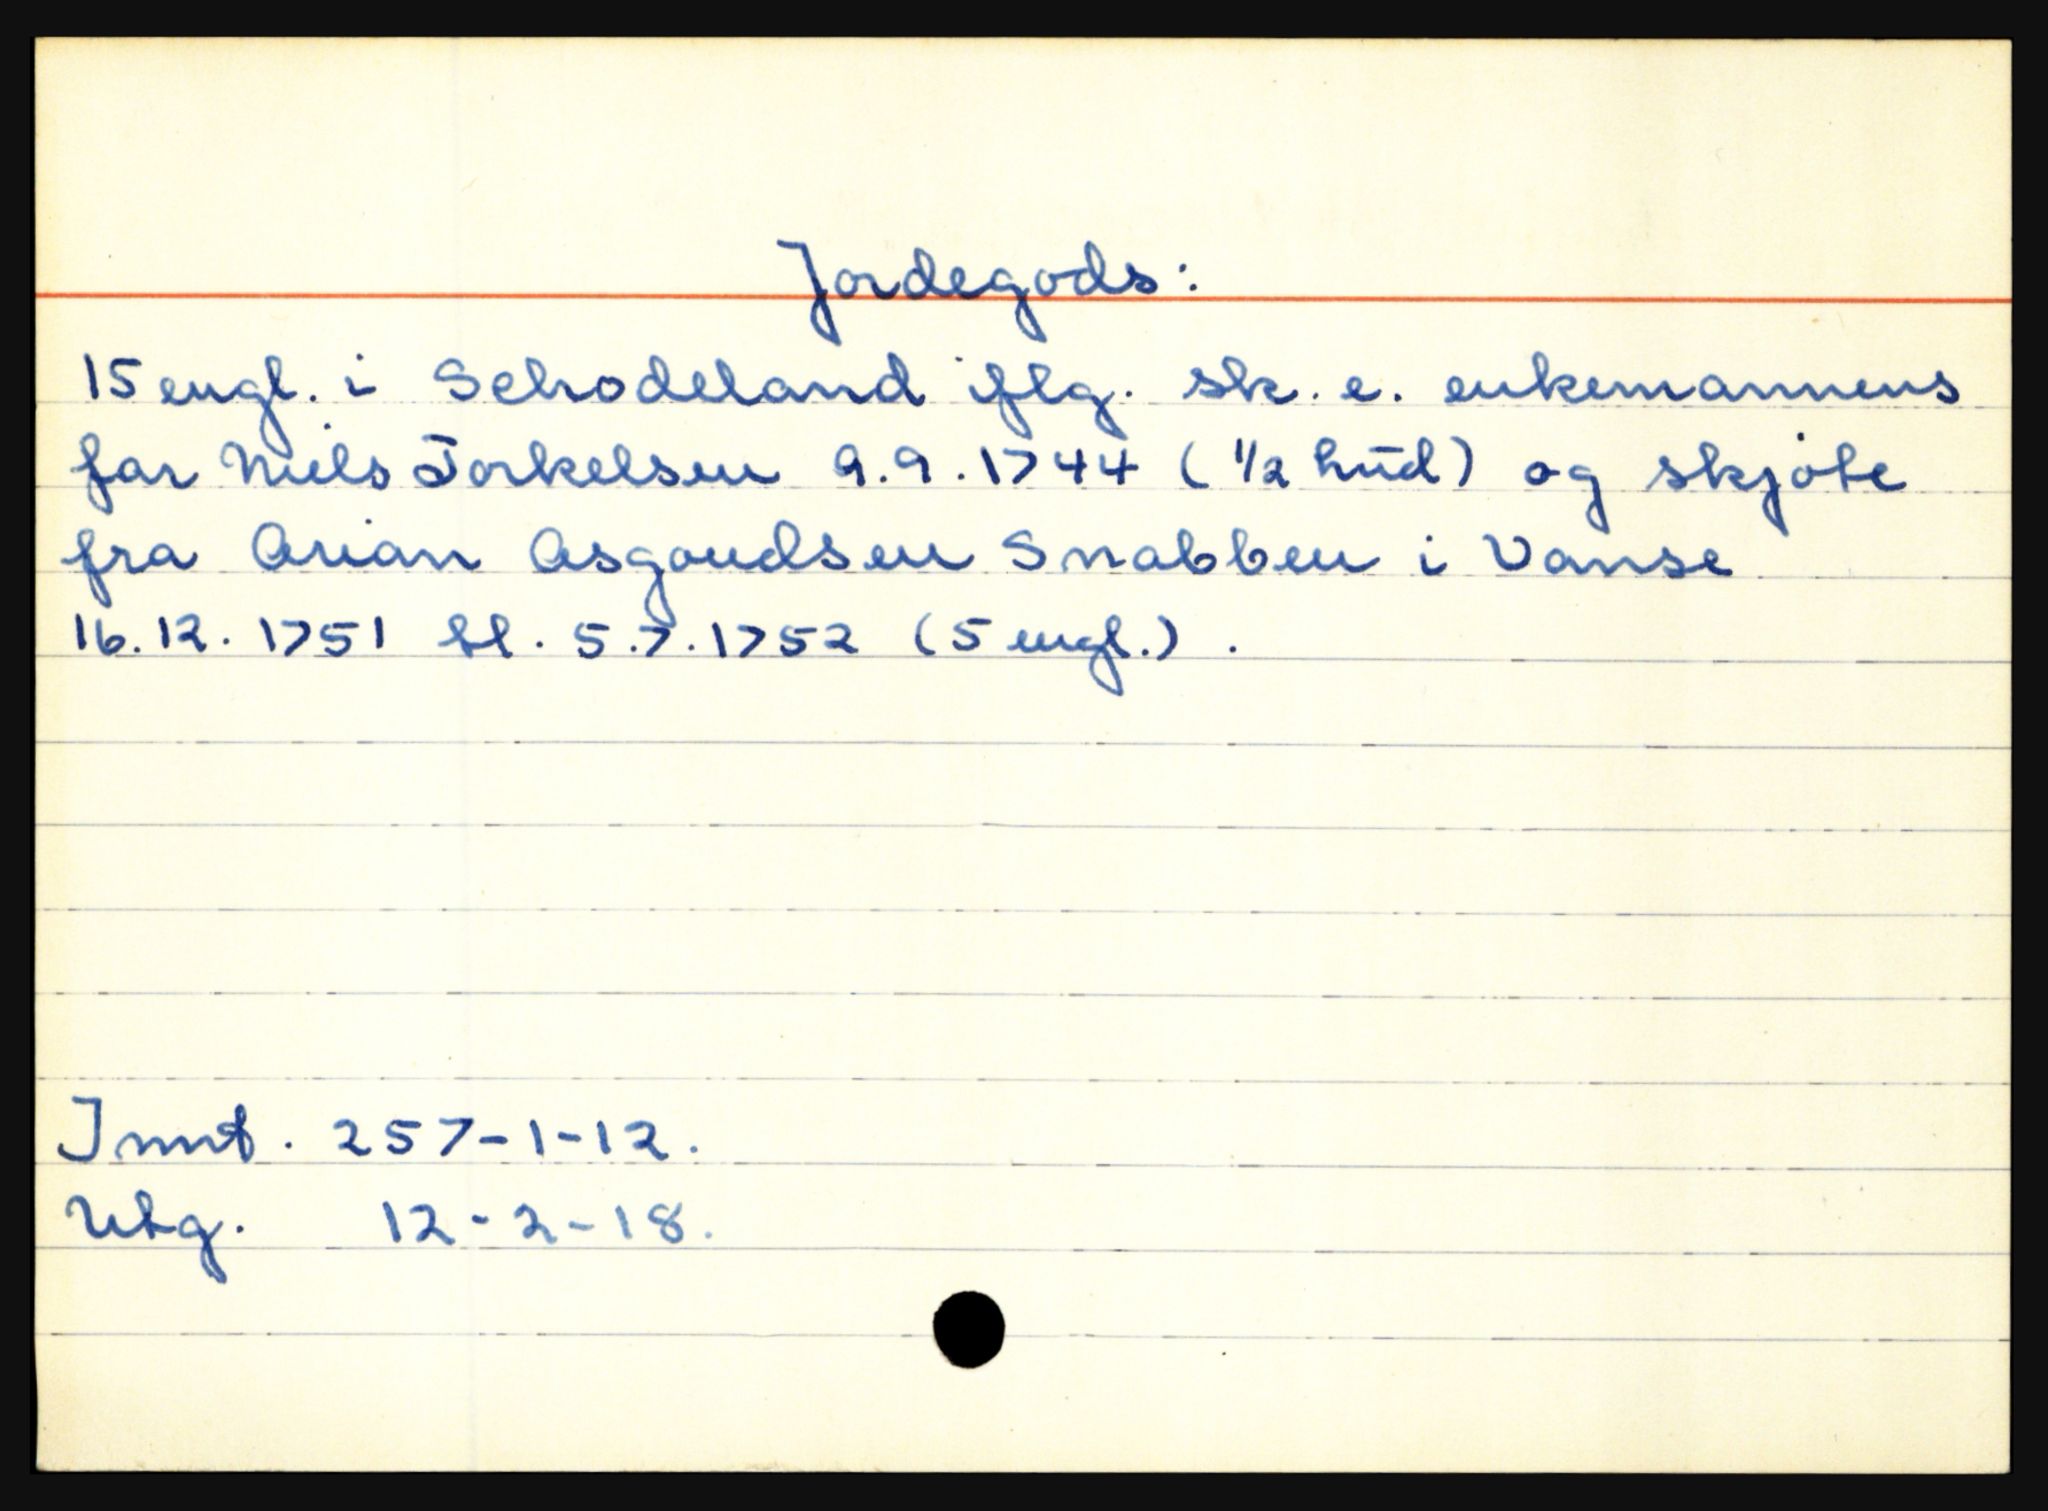 Jordegods:
15 engl. i Schodeland iflg. sk. e. enkemannens
far Niels Torkelsen 9.9.1744 (1/2 hud) og skjøte
fra Arian Asgoudsen Snabben i Vanse
16.12.1751 tl. 5.7.1752 (5 engl.).
Innt. 257-1-12.
Utg. 12-2-18.